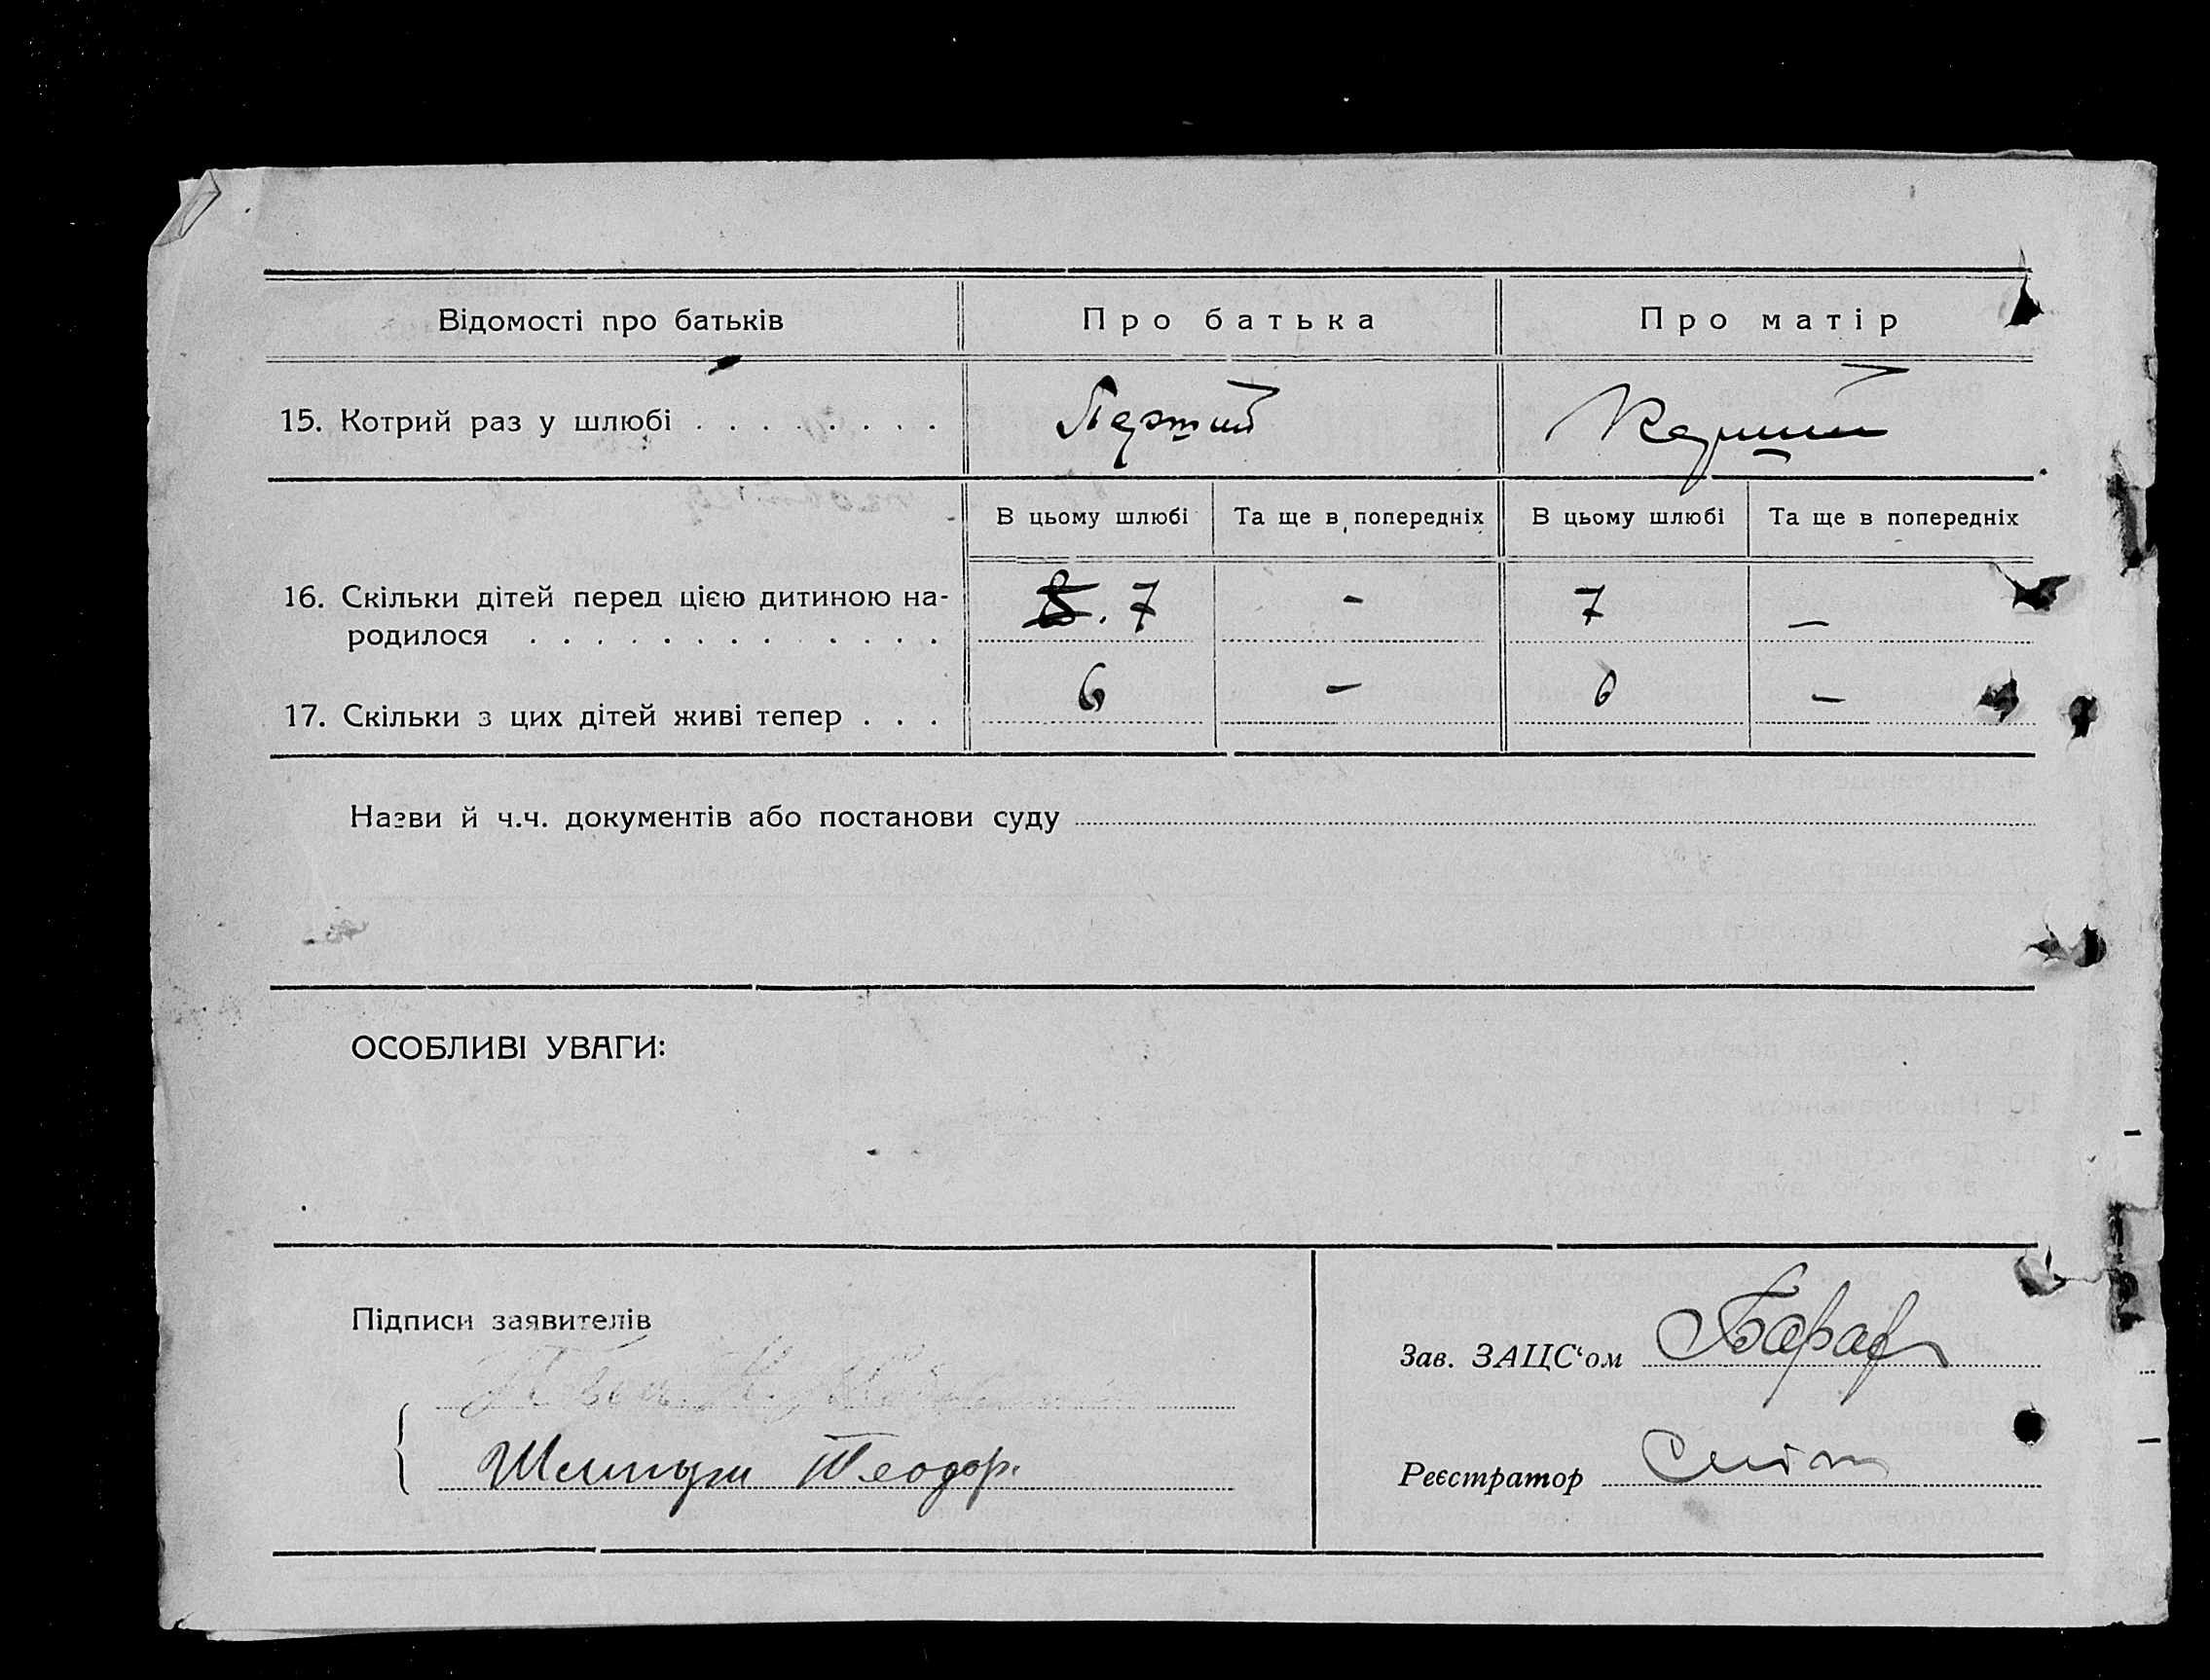 Відомості про батьків
Про батька
Про матір
15. Котрий раз у шлюбі . . . . . . . .
Перший
Перший
В цьому шлюбі
Та ще в попередніх
В цьому шлюбі
Та ще в попередніх
16. Скільки дітей перед цією дитиною на-
родилося . . . . . . . . . . .
8. 7
-
7
-
17. Скільки з цих дітей живі тепер . . .
6
-
6
-
Назви й ч.ч. документів або постанови суду
ОСОБЛИВІ УВАГИ:
Підписи заявителів
Теодор.
Зав. ЗАЦС‘ом
Реєстратор